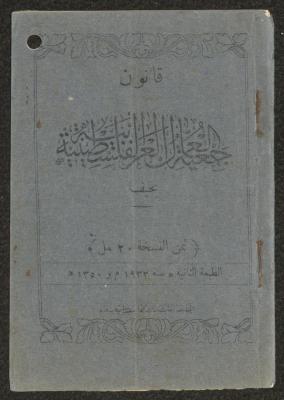 قانون
جمعية العمال العربية الفلسطينية
بحيفا
﴿ ثمن النسخة ٢٠ مل ﴾
الطبعة الثانية * سنة ١٩٣٢ م و ١٣٥٠ *